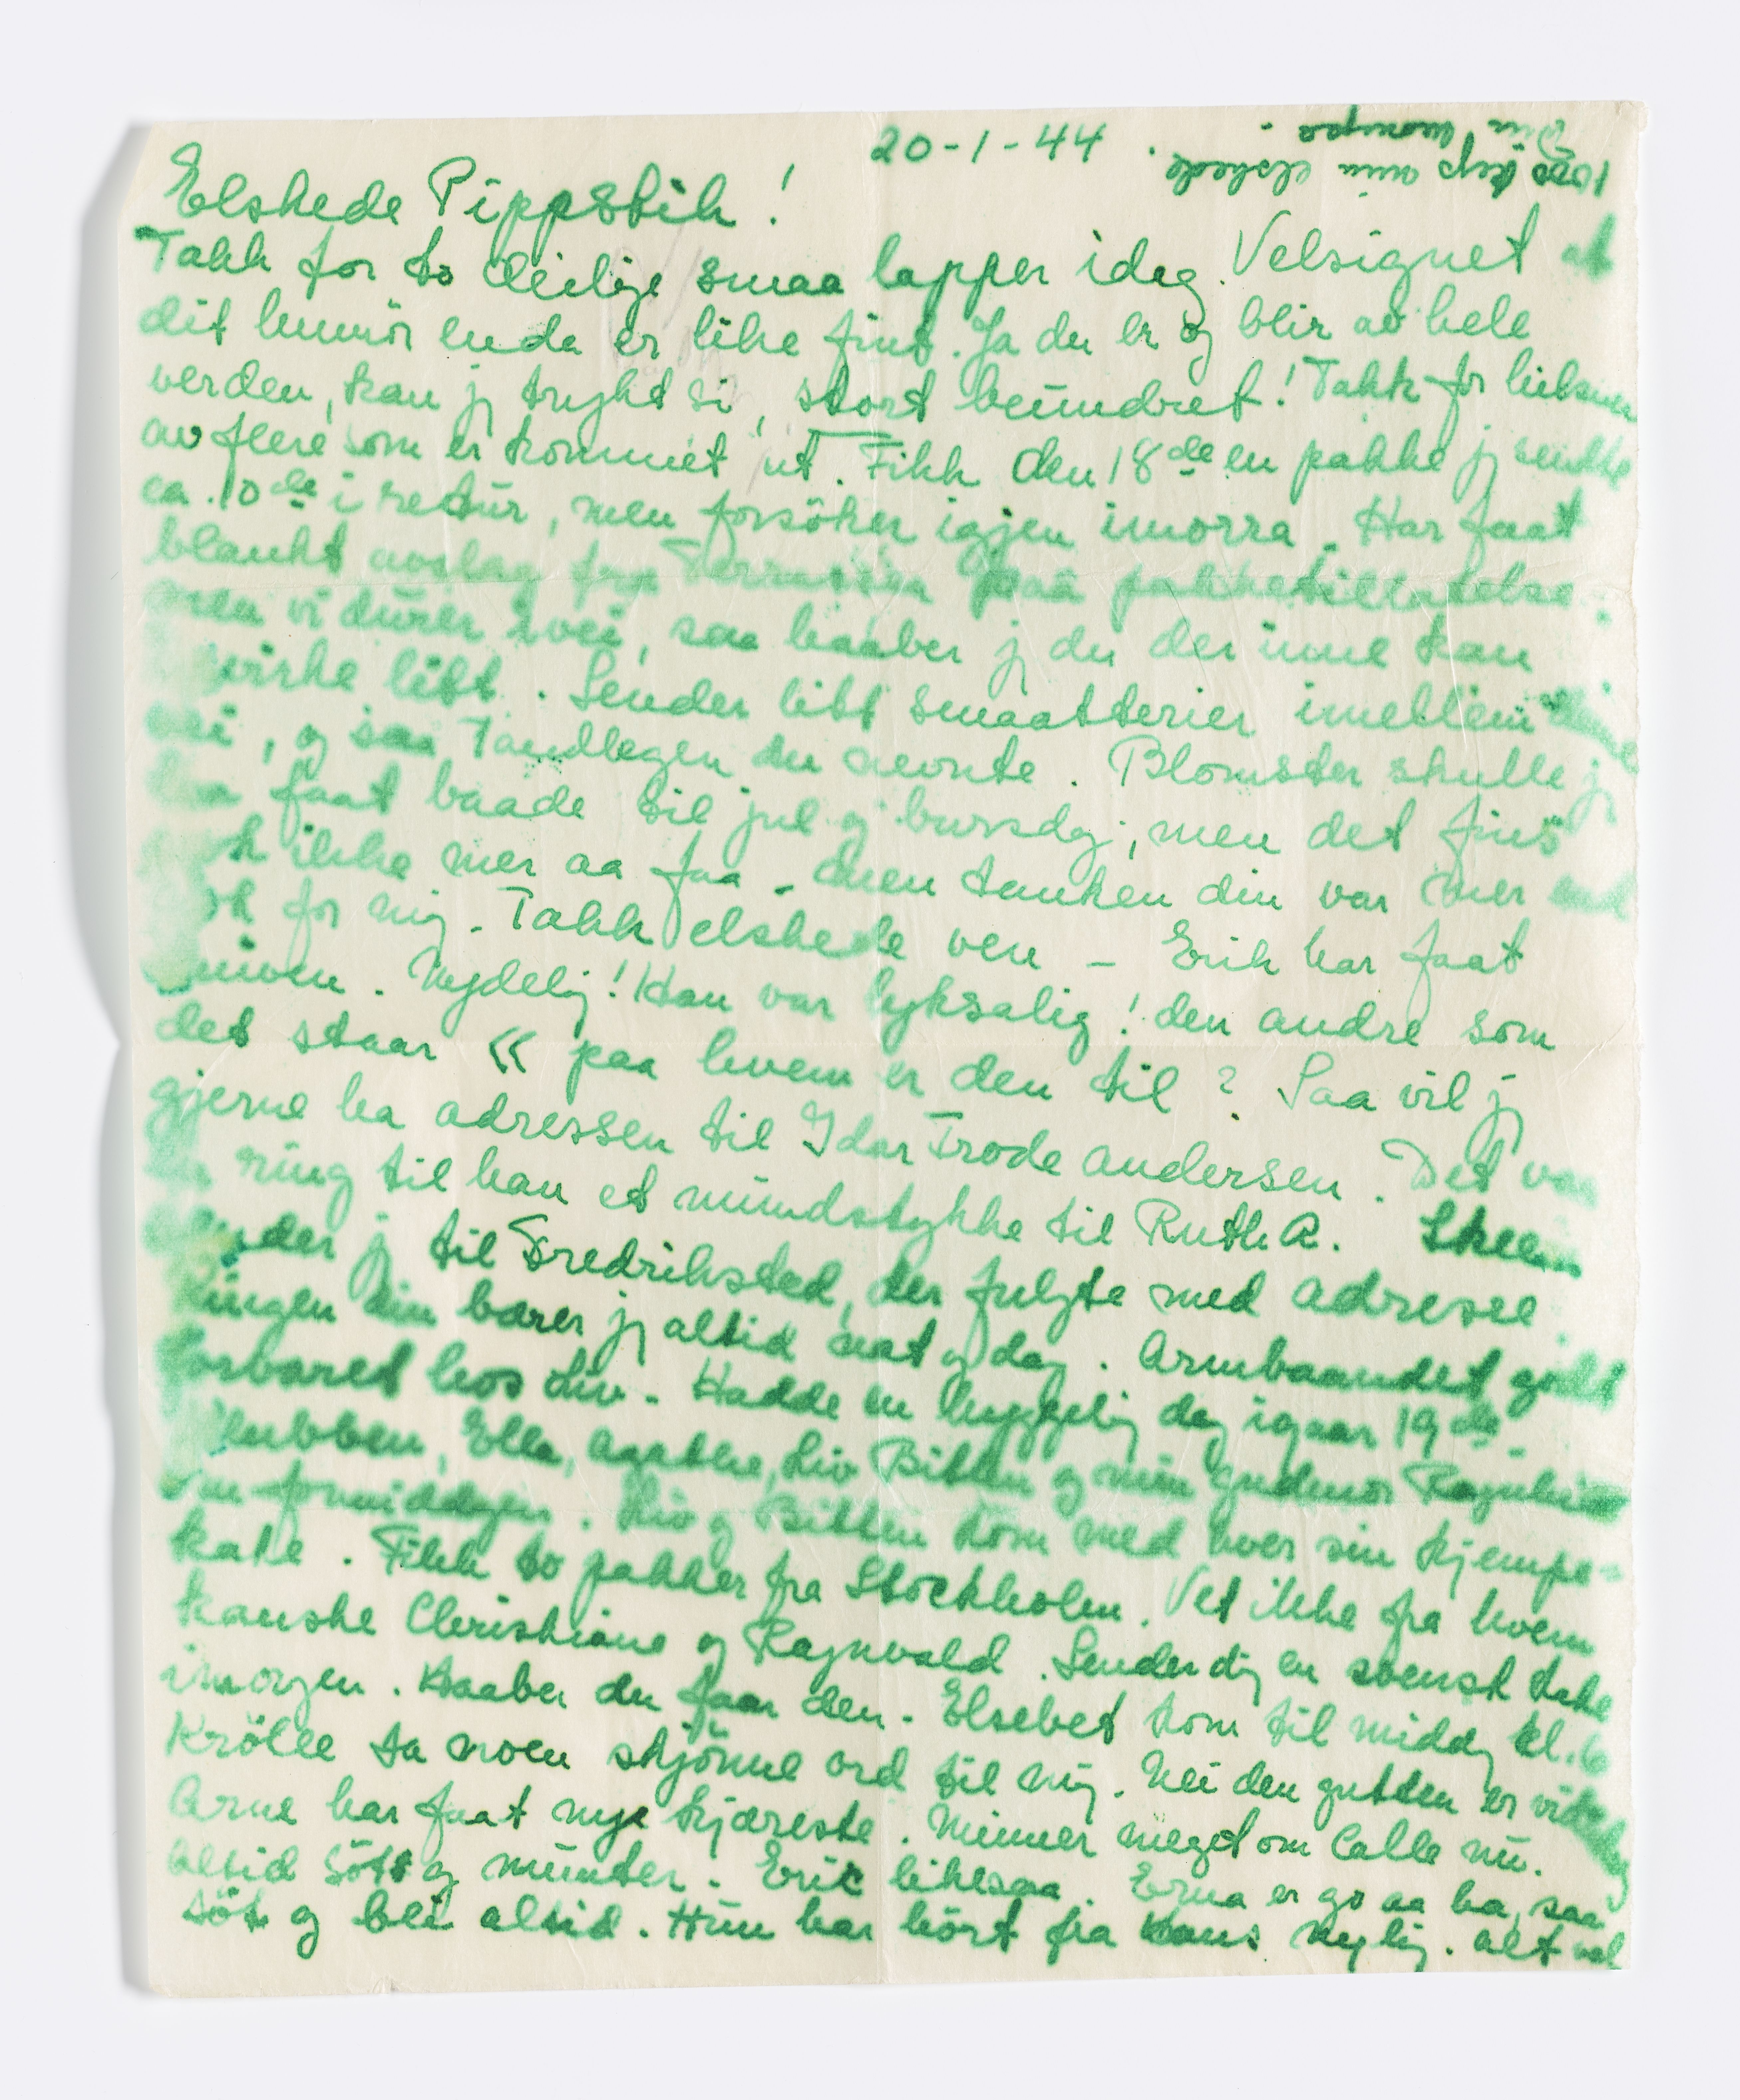 20-1-44.
Elskede Pippstik!
Takk for to deilige smaa lapper idag. Velsignet at
dit humör enda er like fint. Ja du er og blir av hele
verden, kan j trykt si, stort beundret! Takk for hilsener
av flere som er kommet ut. Fikk den 18de en pakke j sendte
ca. 10de i retur, men forsöker igjen imorra. Har faat
blankt avslag fra Terrassen paa pakketilladelse.
men vi durer ivei, saa haaber j du der inne kan
virke litt. Sender litt smaatterier imellem
og saa Tandlegen du nevnte. Blomster skulle j
ha faat baade til jul og bursdg; men det fins
ikke mer aa faa - men tanken din var mer end
nok for mig. Takk elskede ven - Erik har faat
kniven. Nydelig! Han var lyksalig! den andre som
det staar « paa hvem er den til? Saa vil j
gjerne ha adressen til Idar Trode Andersen. Det var
en ring til han et mundstykke til Ruth A. Skeen
sender j til Fredrikstad, der fulgte med adresse.
Ringen din bærer j altid nat og dag. Armbaandet godt
forvaret hos Liv. Hadde en hyggelig dag igaar 19de.
Klubben, Ella, Agathe, Liv Bitten og min gudmor Ragnhild
om formiddagen. Liv og Bitten kom med hver sin kjempe-
kake. Fikk to pakker fra Stockholm. Vet ikke fra hvem
kanske Christiane og Ragnvald. Sender dig en svensk kake
imorgen. Haaber du faar den. Elsebet kom til middg kl. 6
Krölle sa noen skjönne ord til mig. Nei den gutten er virkelig
Arne har faat nye kjæreste. Minner meget om Calle nu.
Altid söt og munter. Eric likesaa. Erna er go aa ha, saa
söt og blid altid. Hun har hört fra Hans nylig. Alt vel
1000 kys min elskede
Din mamma.